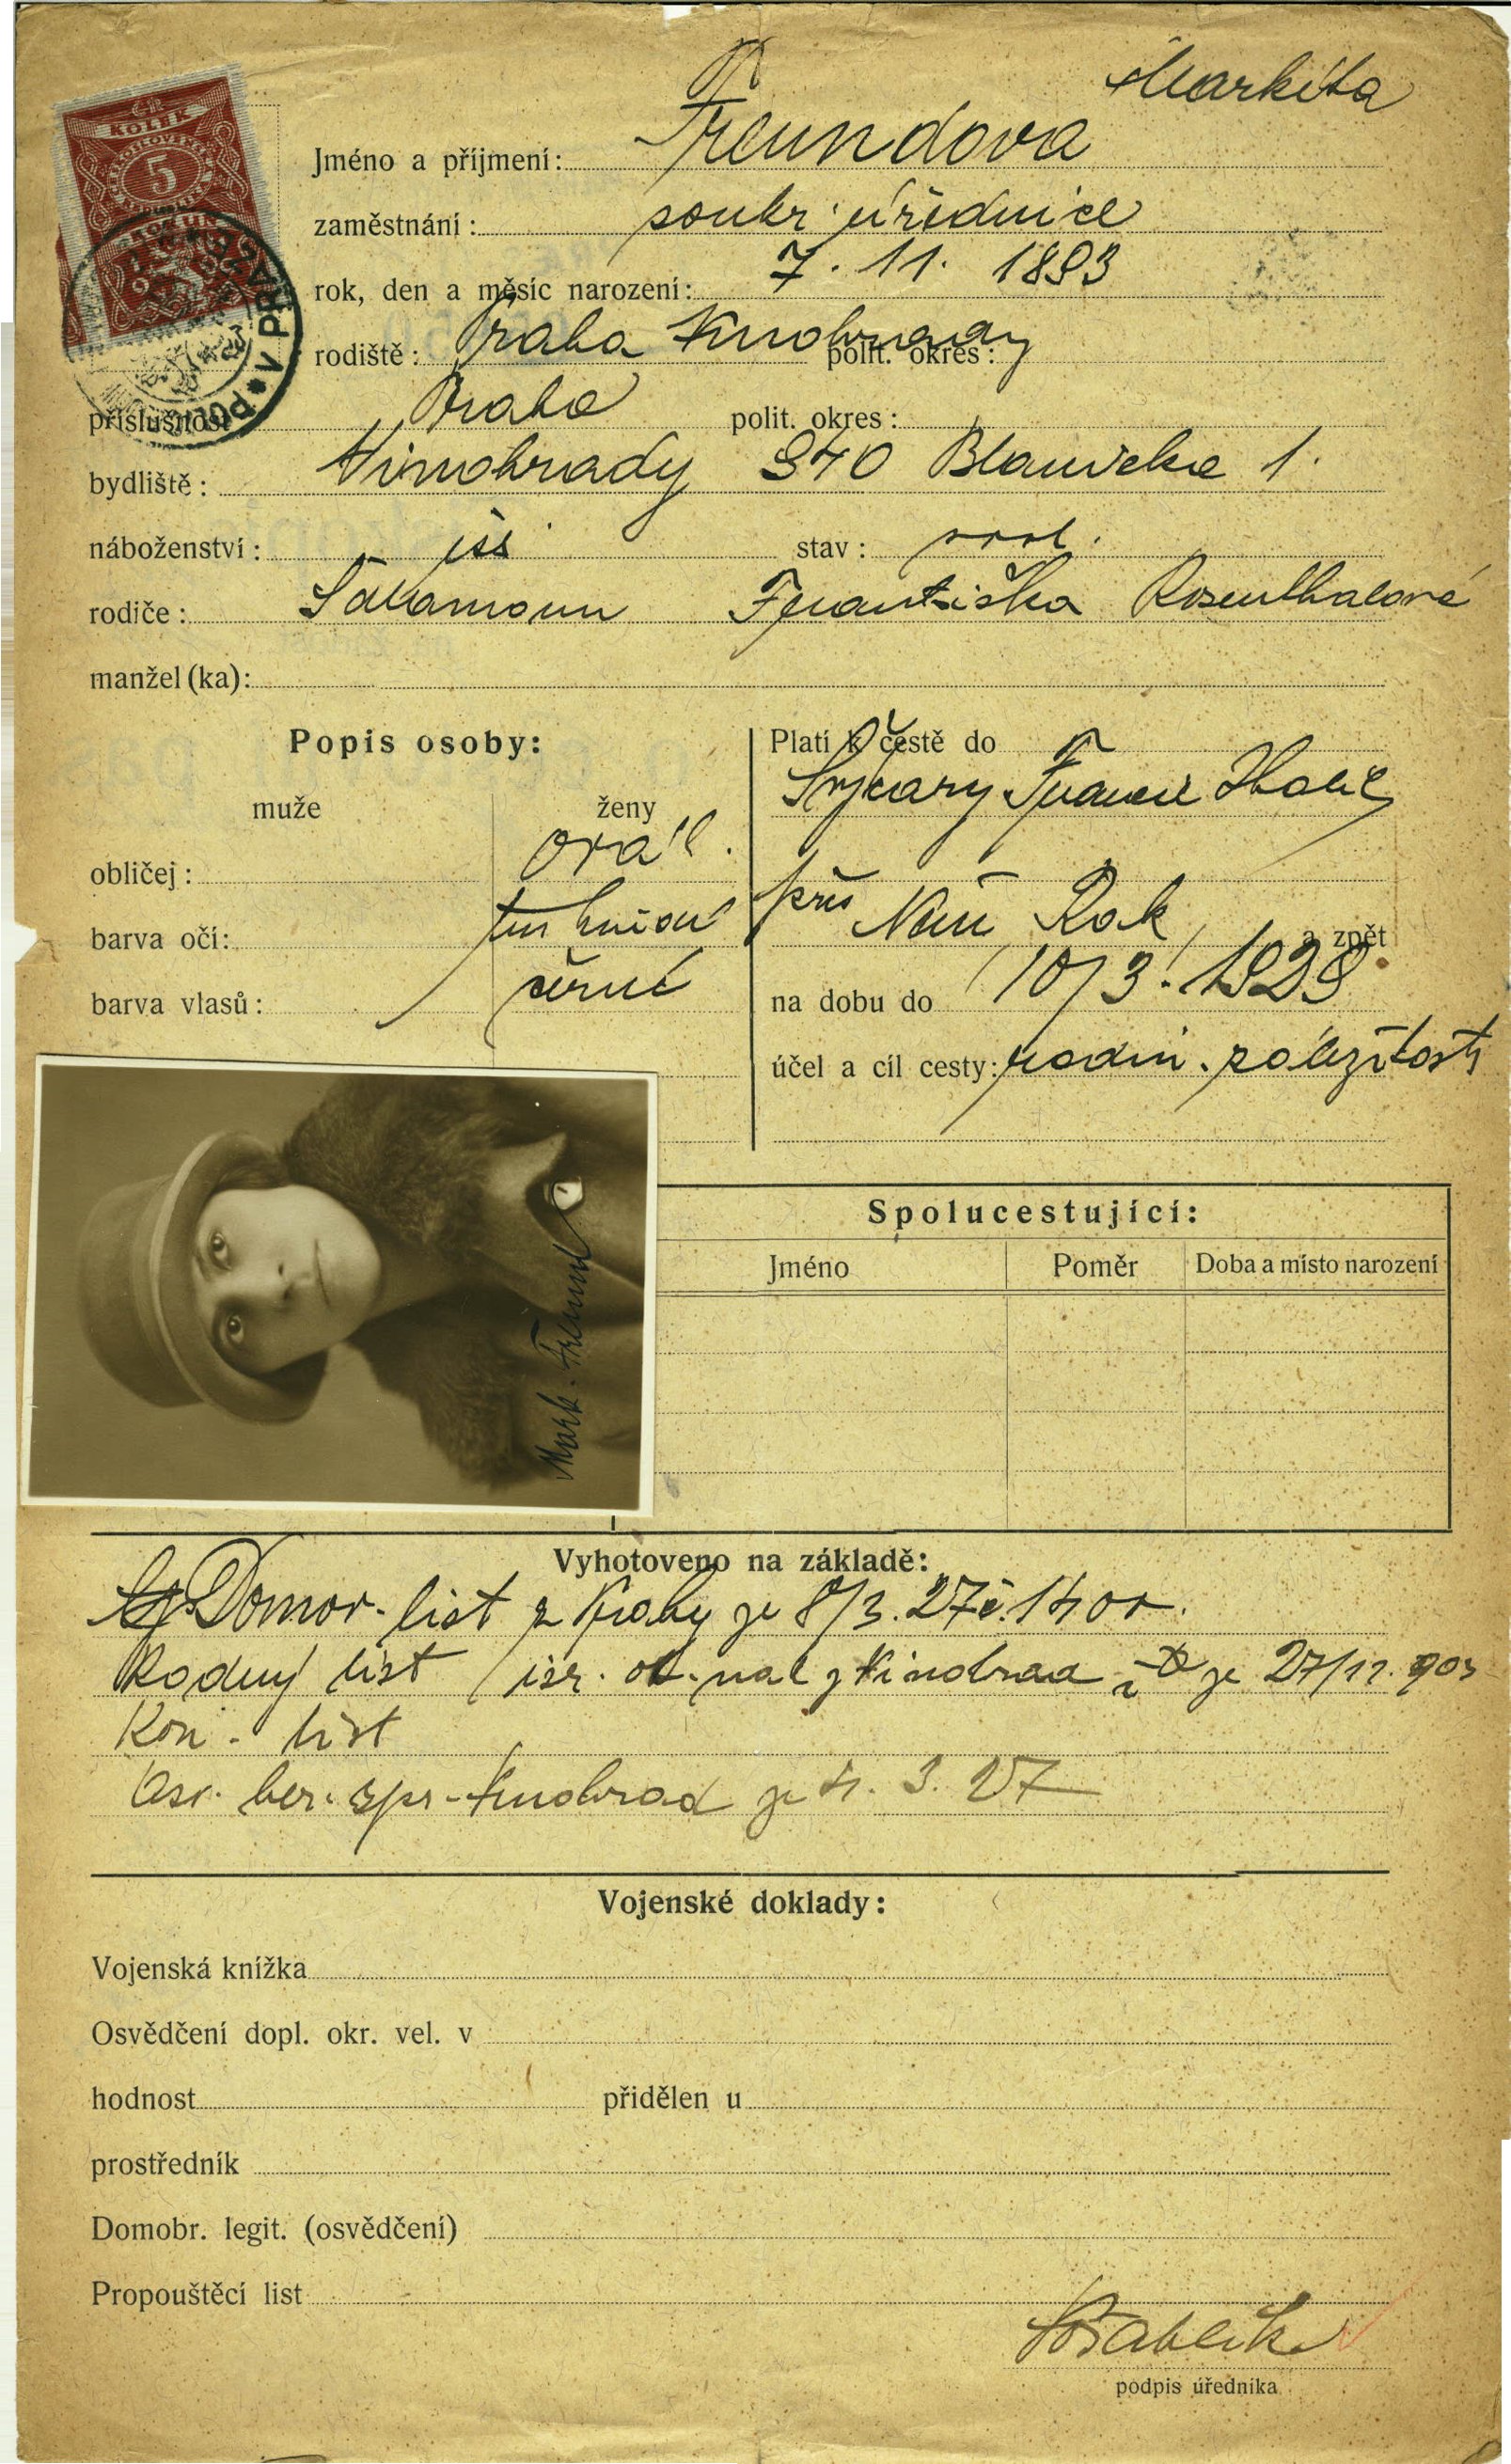 Markéta
Jméno a příjmení: Freundova
zaměstnání: soukr. úřednice
rok, den a měsíc narození: 7. 11. 1893
rodiště: Praha Vinohrady polit. okres:
příslušnost Praha polit. okres:
bydliště: Vinohrady 940 Blanická 1.
náboženství: isr. stav: svob.
rodiče: Salamoun Františka Rosenthalová
manžel(ka):
Popis osoby:
muže ženy
obličej: ovál.
barva očí: tm hnědé
barva vlasů: černé
Platí k cestě do
Švýcary Francie Italie
přes Něm Rak a zpět
na dobu do 10/3. 1929
účel a cíl cesty: rodin. záležitosti
KOLEK
5
POLIC V PRAZE
Mark. Freund
Spolucestující:
Jméno Poměr Doba a místo narození
Vyhotoveno na základě:
Domov. list z Prahy ze 8/3. 27 č.
Rodný list isr. ob. nál z Vinohrad ze 27/11. 903
Kon. list
Osv. ber. spr. Vinohrad ze 4. 3. 27
Vojenské doklady:
Vojenská knížka
Osvědčení dopl. okr. vel. v
hodnost přidělen u
prostředník
Domobr. legit. (osvědčení)
Propouštěcí list
podpis úředníka